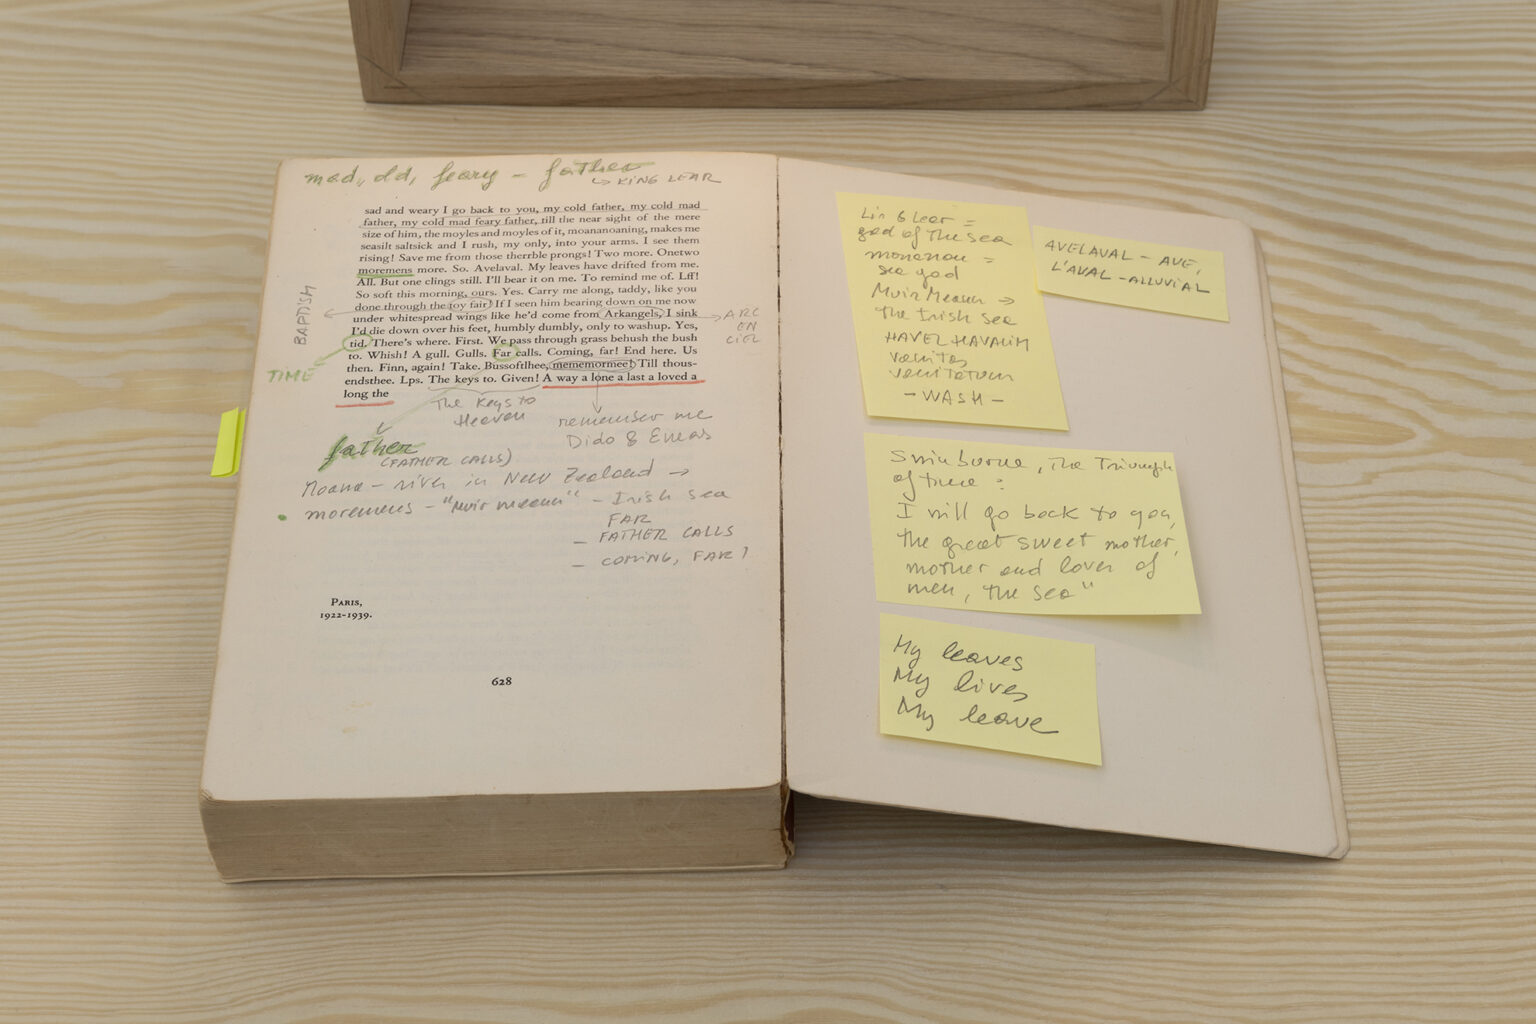 mad, old, feary - father
↳ KING LEAR
sad and weary I go back to you, my cold father, my cold mad
father, my cold mad feary father, till the near sight of the mere
size of him, the moyles and moyles of it, moananoaning, makes me
seasilt saltsick and I rush, my only, into your arms. I see them
rising! Save me from those therrble prongs! Two more. Onetwo
moremens more. So. Avelaval. My leaves have drifted from me.
All. But one clings still. I'll bear it on me. To remind me of. Lff!
So soft this morning, ours. Yes. Carry me along, taddy, like you
done through the toy fair! If I seen him bearing down on me now
under whitespread wings like he'd come from Arkangels, I sink
I'd die down over his feet, humbly dumbly, only to washup. Yes,
tid. There's where. First. We pass through grass behush the bush
to. Whish! A gull. Gulls. Far calls. Coming, far! End here. Us
then. Finn, again! Take. Bussoftlhee, mememormee! Till thous-
endsthee. Lps. The keys to. Given! A way a lone a last a loved a
long the
BAPTISM
TIME
ARC
EN
CIEL
The Keys to
Heaven
remember me
Dido & Eneas
father
(FATHER CALLS)
Moana - river in New Zealand →
moremens - "Muir meann" - Irish sea
FAR
- FATHER CALLS
- COMING, FAR!
PARIS,
1922-1939.
628
Lir & Lear =
god of the sea
mananau =
sea god
Muir Meann →
the Irish sea
HAVEL HAVALIM
vanitas
vanitatum
- WASH -
AVELAVAL - AVE,
L'AVAL - ALLUVIAL
Swinburne, The Triumph
of time :
I will go back to you,
the great sweet mother,
mother and lover of
men, the sea"
My leaves
My lives
My leave